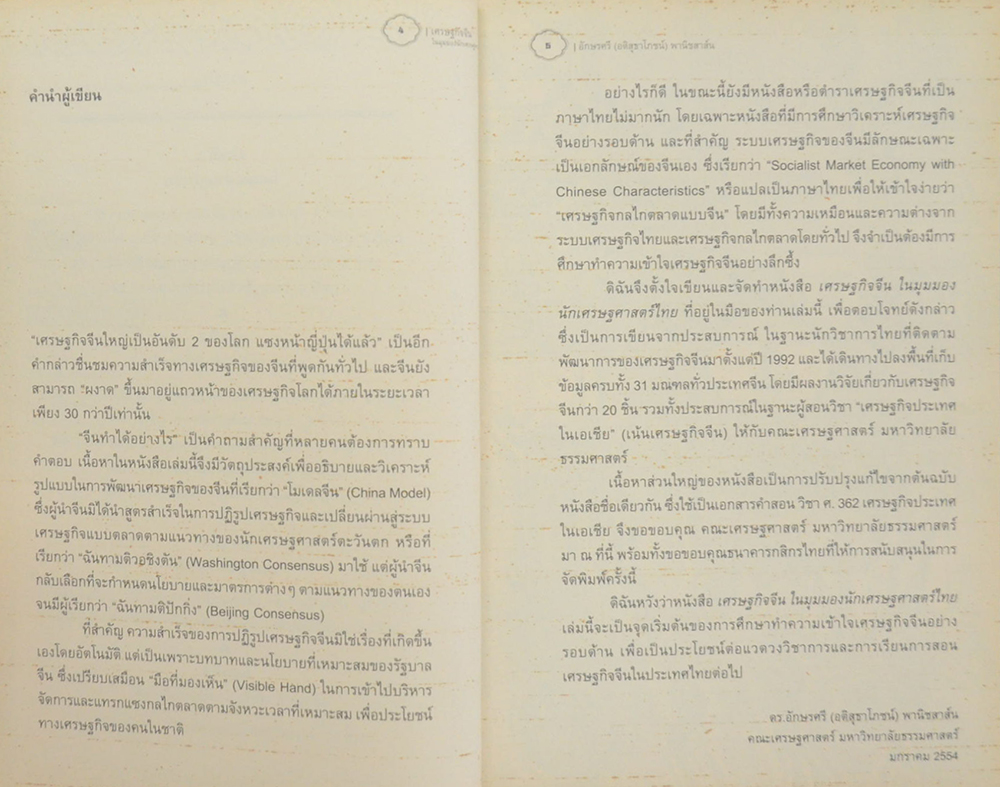 4
| เศรษฐกิจจีน
คำนำผู้เขียน
“เศรษฐกิจจีนใหญ่เป็นอันดับ 2 ของโลก แซงหน้าญี่ปุ่นได้แล้ว” เป็นอีก
คำกล่าวชื่นชมความสำเร็จทางเศรษฐกิจของจีนที่พูดกันทั่วไป และจีนยัง
สามารถ “ผงาด” ขึ้นมาอยู่แถวหน้าของเศรษฐกิจโลกได้ภายในระยะเวลา
เพียง 30 กว่าปีเท่านั้น
“จีนทำได้อย่างไร” เป็นคำถามสำคัญที่หลายคนต้องการทราบ
คำตอบ เนื้อหาในหนังสือเล่มนี้จึงมีวัตถุประสงค์เพื่ออธิบายและวิเคราะห์
รูปแบบในการพัฒนาเศรษฐกิจของจีนที่เรียกว่า “โมเดลจีน” (China Model)
ซึ่งผู้นำจีนมิได้นำสูตรสำเร็จในการปฏิรูปเศรษฐกิจและเปลี่ยนผ่านสู่ระบบ
เศรษฐกิจแบบตลาดตามแนวทางของนักเศรษฐศาสตร์ตะวันตก หรือที่
เรียกว่า “ฉันทามติวอชิงตัน” (Washington Consensus) มาใช้ แต่ผู้นำจีน
กลับเลือกที่จะกำหนดนโยบายและมาตรการต่างๆ ตามแนวทางของตนเอง
จนมีผู้เรียกว่า “ฉันทามติปักกิ่ง” (Beijing Consensus)
ที่สำคัญ ความสำเร็จของการปฏิรูปเศรษฐกิจจีนมิใช่เรื่องที่เกิดขึ้น
เองโดยอัตโนมัติ แต่เป็นเพราะบทบาทและนโยบายที่เหมาะสมของรัฐบาล
จีน ซึ่งเปรียบเสมือน “มือที่มองเห็น” (Visible Hand) ในการเข้าไปบริหาร
จัดการและแทรกแซงกลไกตลาดตามจังหวะเวลาที่เหมาะสม เพื่อประโยชน์
ทางเศรษฐกิจของคนในชาติ
5
| อักษรศรี (อติสุธาโภชน์) พานิชสาส์น
อย่างไรก็ดี ในขณะนี้ยังมีหนังสือหรือตำราเศรษฐกิจจีนที่เป็น
ภาษาไทยไม่มากนัก โดยเฉพาะหนังสือที่มีการศึกษาวิเคราะห์เศรษฐกิจ
จีนอย่างรอบด้าน และที่สำคัญ ระบบเศรษฐกิจของจีนมีลักษณะเฉพาะ
เป็นเอกลักษณ์ของจีนเอง ซึ่งเรียกว่า “Socialist Market Economy with
Chinese Characteristics” หรือแปลเป็นภาษาไทยเพื่อให้เข้าใจง่ายว่า
“เศรษฐกิจกลไกตลาดแบบจีน” โดยมีทั้งความเหมือนและความต่างจาก
ระบบเศรษฐกิจไทยและเศรษฐกิจกลไกตลาดโดยทั่วไป จึงจำเป็นต้องมีการ
ศึกษาทำความเข้าใจเศรษฐกิจจีนอย่างลึกซึ้ง
ดิฉันจึงตั้งใจเขียนและจัดทำหนังสือ เศรษฐกิจจีน ในมุมมอง
นักเศรษฐศาสตร์ไทย ที่อยู่ในมือของท่านเล่มนี้ เพื่อตอบโจทย์ดังกล่าว
ซึ่งเป็นการเขียนจากประสบการณ์ ในฐานะนักวิชาการไทยที่ติดตาม
พัฒนาการของเศรษฐกิจจีนมาตั้งแต่ปี 1992 และได้เดินทางไปลงพื้นที่เก็บ
ข้อมูลครบทั้ง 31 มณฑลทั่วประเทศจีน โดยมีผลงานวิจัยเกี่ยวกับเศรษฐกิจ
จีนกว่า 20 ชิ้น รวมทั้งประสบการณ์ในฐานะผู้สอนวิชา “เศรษฐกิจประเทศ
ในเอเชีย” (เน้นเศรษฐกิจจีน) ให้กับคณะเศรษฐศาสตร์ มหาวิทยาลัย
ธรรมศาสตร์
เนื้อหาส่วนใหญ่ของหนังสือเป็นการปรับปรุงแก้ไขจากต้นฉบับ
หนังสือชื่อเดียวกัน ซึ่งใช้เป็นเอกสารคำสอน วิชา ศ. 362 เศรษฐกิจประเทศ
ในเอเชีย จึงขอขอบคุณ คณะเศรษฐศาสตร์ มหาวิทยาลัยธรรมศาสตร์
มา ณ ที่นี้ พร้อมทั้งขอขอบคุณธนาคารกสิกรไทยที่ให้การสนับสนุนในการ
จัดพิมพ์ครั้งนี้
ดิฉันหวังว่าหนังสือ เศรษฐกิจจีน ในมุมมองนักเศรษฐศาสตร์ไทย
เล่มนี้จะเป็นจุดเริ่มต้นของการศึกษาทำความเข้าใจเศรษฐกิจจีนอย่าง
รอบด้าน เพื่อเป็นประโยชน์ต่อแวดวงวิชาการและการเรียนการสอน
เศรษฐกิจจีนในประเทศไทยต่อไป
ดร.อักษรศรี (อติสุธาโภชน์) พานิชสาส์น
คณะเศรษฐศาสตร์ มหาวิทยาลัยธรรมศาสตร์
มกราคม 2554